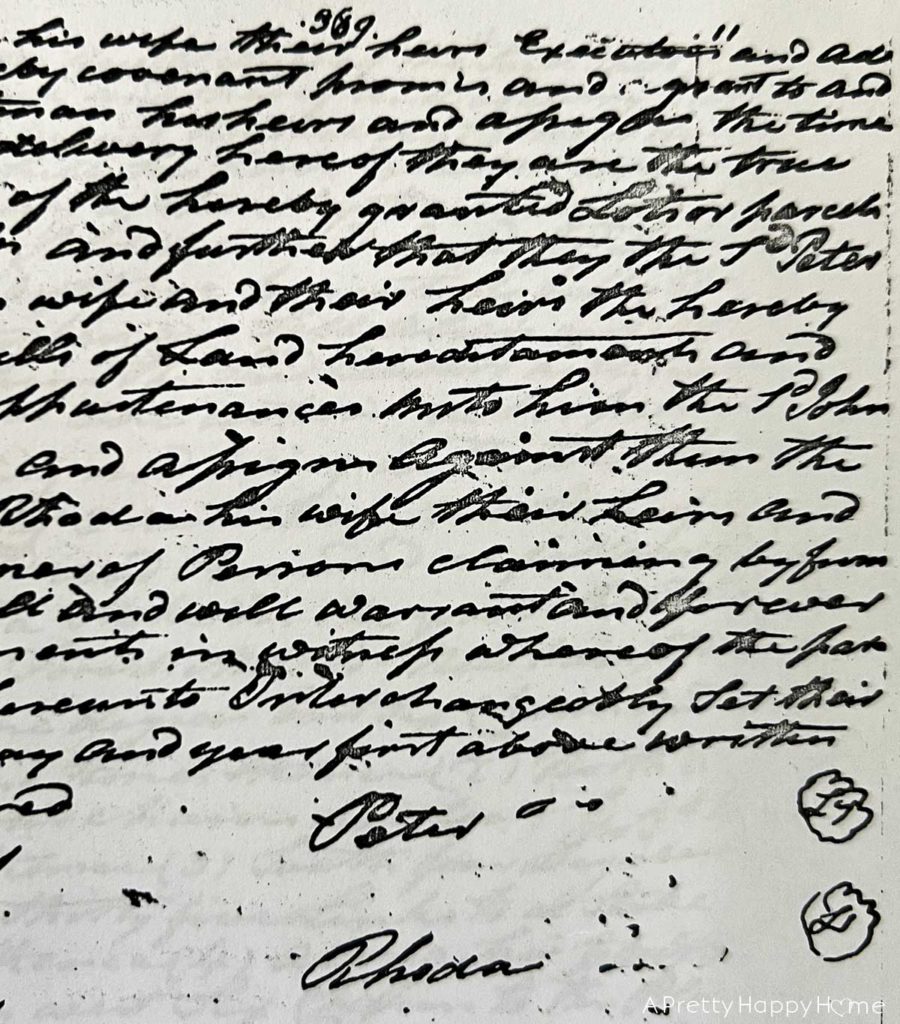 389
his wife their heirs Executors" and ad
by covenant promis and grant to and
man his heirs and assigns the time
delivery hereof they are the true
of the hereby granted Lots or parcels
and further that they the Sd Peter
wife and their heirs the hereby
of Land hereditaments and
appurtenances unto him the Sd John
and assigns against them the
Rhoda his wife their heirs and
of Persons claiming by from
and will warrant and forever
in witness whereof the par
hereunto Interchangeably Set their
and year first above written
Peter
LS
Rhoda
LS
A Pretty Happy Home